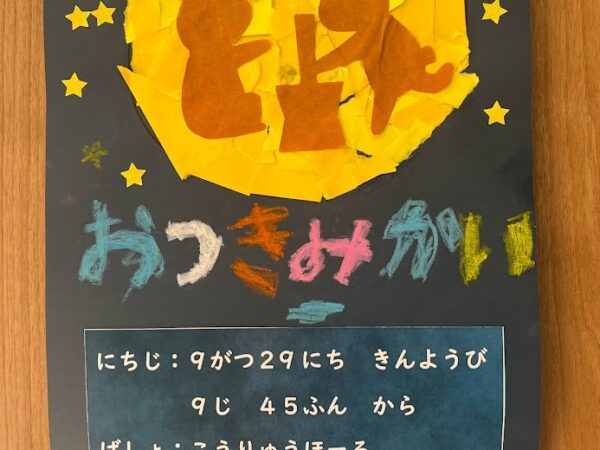 おつきみかい
にちじ：９がつ２９にち　きんようび
９じ　４５ふん　から
ばしょ：こうりゅうほーる